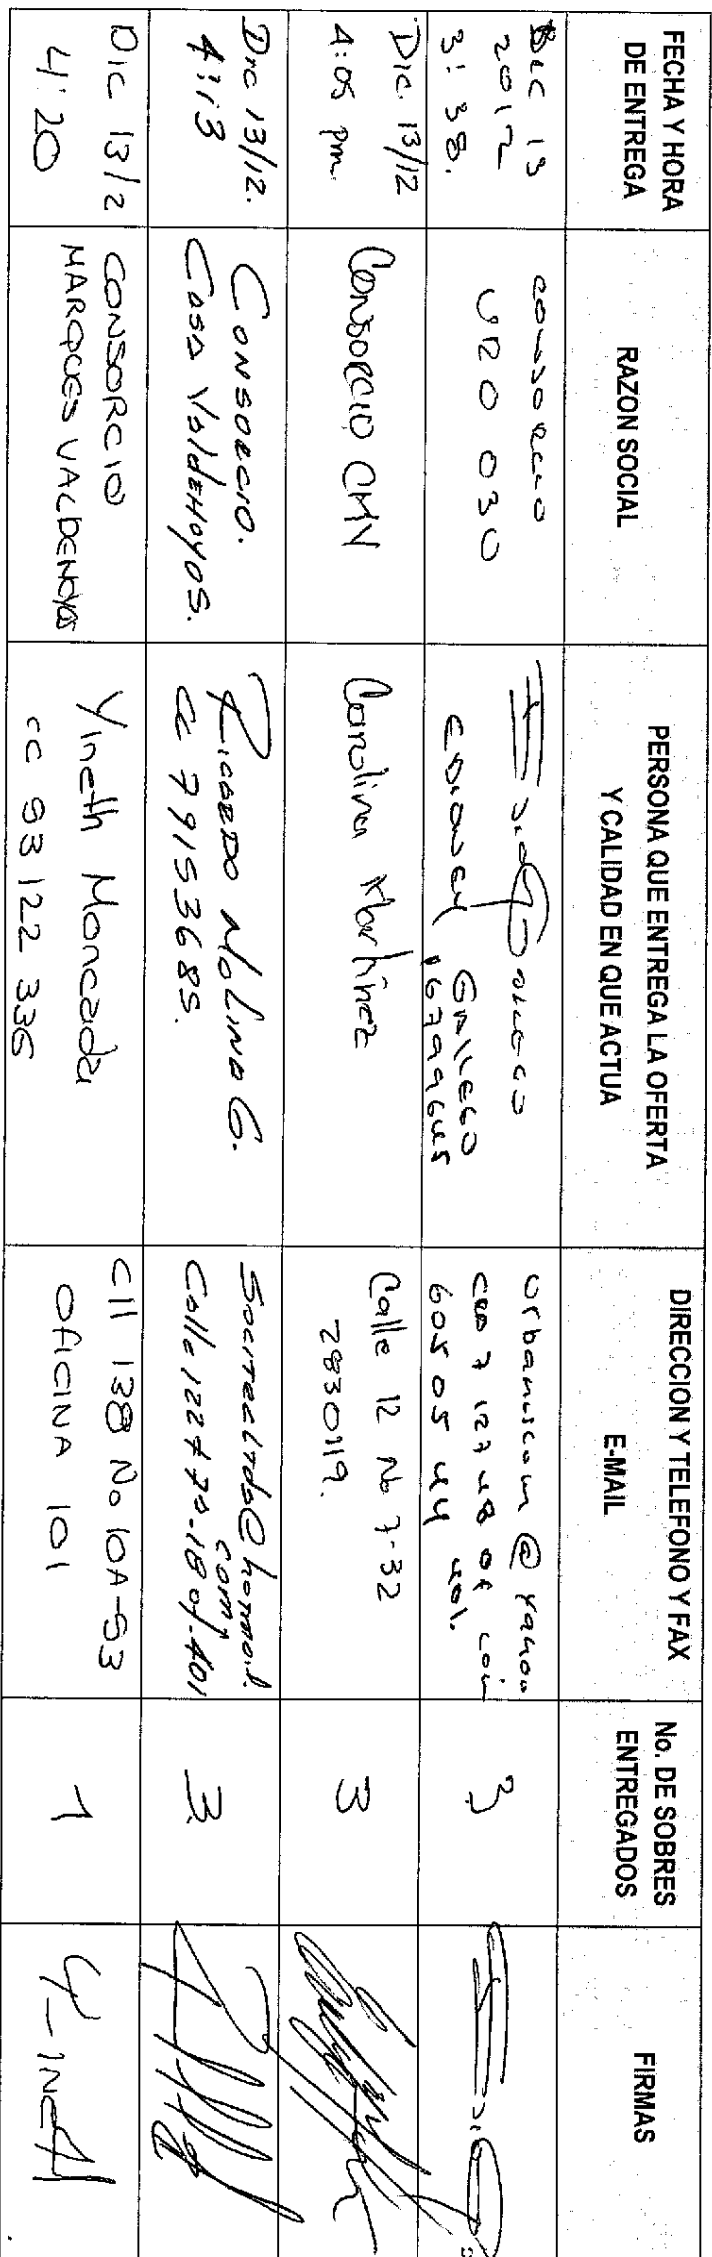 FECHA Y HORA
DE ENTREGA
RAZON SOCIAL
PERSONA QUE ENTREGA LA OFERTA
Y CALIDAD EN QUE ACTUA
DIRECCION Y TELEFONO Y FAX
E-MAIL
No. DE SOBRES
ENTREGADOS
FIRMAS
Dic 13
2012
3:38.
consorcio
URO 030
GALLEGO
@ yahoo
605 05 44
3
Dic. 13/12
4:05 pm.
Consorcio CMV
Carolina Martinez
Calle 12 No 7-32
2830119.
3
Dic 13/12.
4:13
Consorcio.
Casa Valdehoyos.
Ricardo Molina G.
cc 79153685.
Calle 122 # 70-18 of. 401
3
Dic 13/2
4:20
CONSORCIO
MARQUES VALDEHOYOS
Yineth Moncada
cc 53 122 336
Cll 138 No 10A-53
OFICINA 101
1